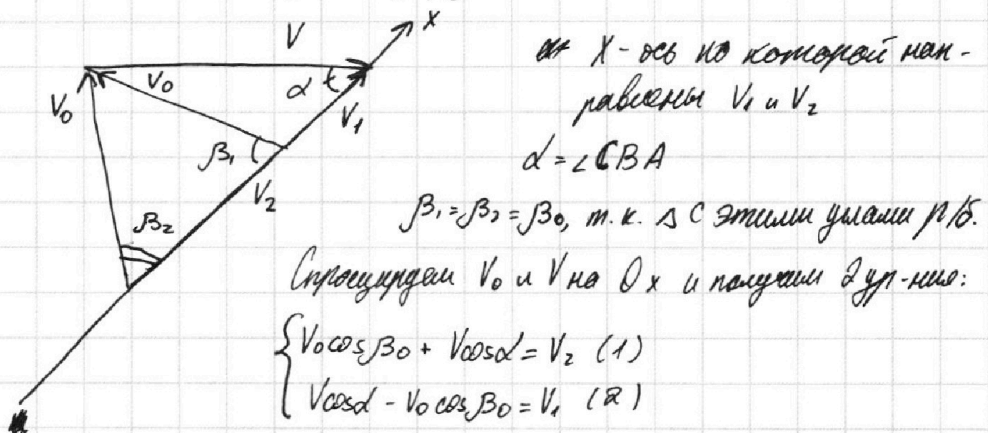 V
X
V₀
V₀
α
V₁
β₁
V₂
β₂
X - ось по которой нап-
равлены V₁ и V₂
α = ∠CBA
β₁ = β₂ = β₀, т.к. Δ с этими углами р/б.
Спроецируем V₀ и V на Ox и получим 2 ур-ния:
{ V₀cosβ₀ + Vcosα = V₂ (1)
Vcosα - V₀cosβ₀ = V₁ (2)